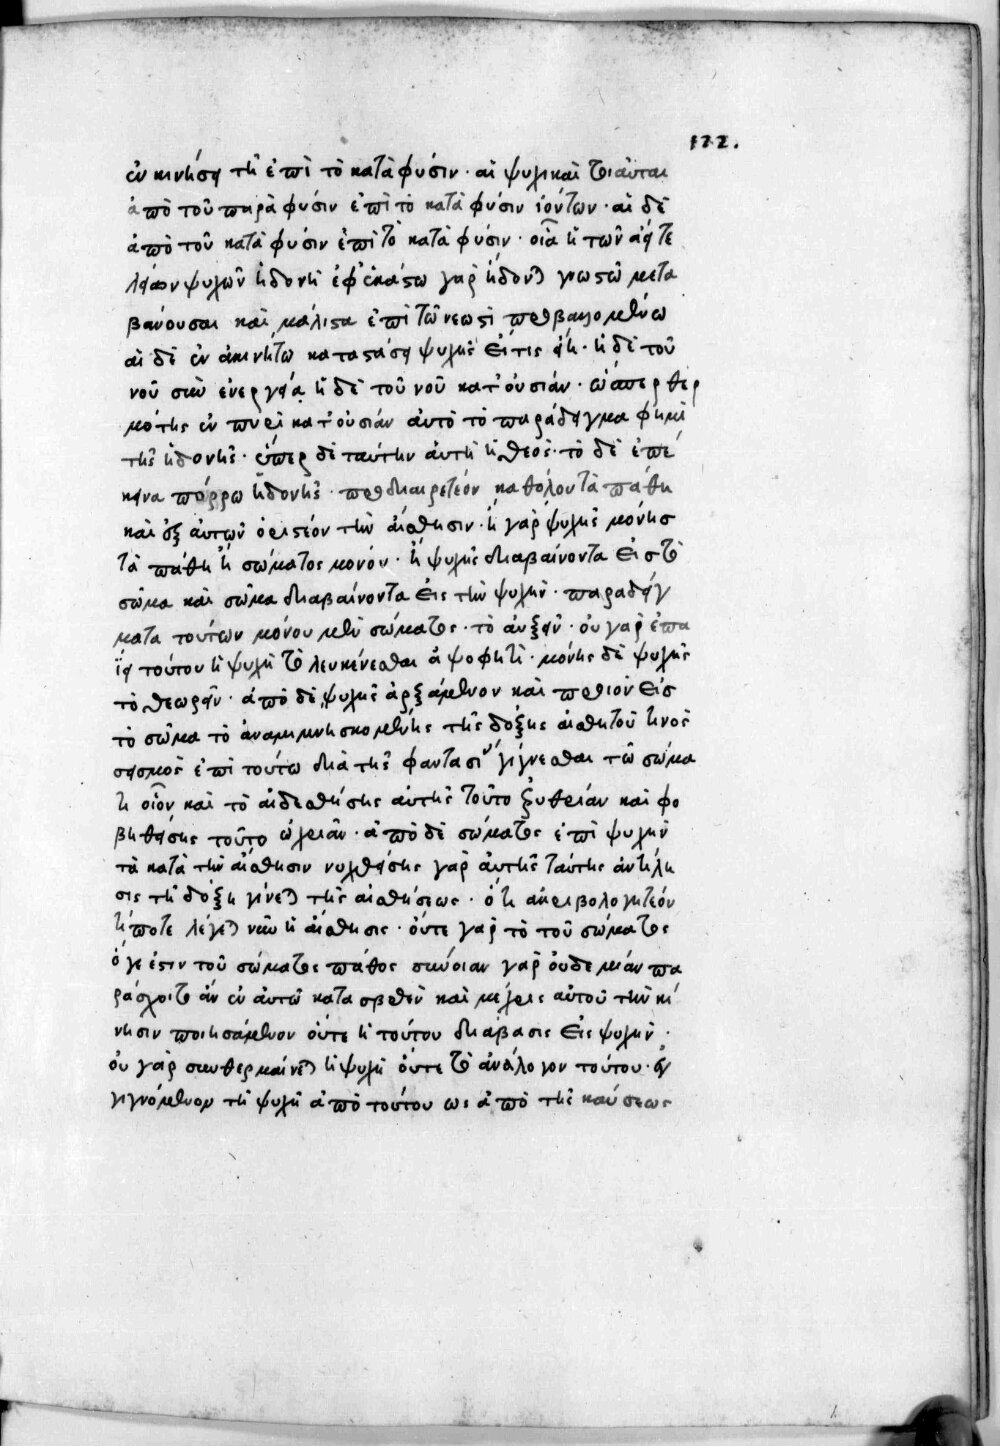 122.
ἐν κινήσει τῇ ἐπὶ τὸ κατὰ φύσιν· αἱ ψυχικαὶ τοιαῦται
ἀπὸ τοῦ παρὰ φύσιν ἐπὶ τὸ κατὰ φύσιν ἰόντων· αἱ δὲ
ἀπὸ τοῦ κατὰ φύσιν ἐπὶ τὸ κατὰ φύσιν· οἷα ἡ τῶν ἀεὶ τε
λείων ψυχῶν ἡδονὴ ἐφ' ἑκάστω γὰρ ἥδονται γνωστῶ μετα
βαίνουσαι καὶ μάλιστα ἐπὶ τῶ νεωστὶ προβαλλομένω
αἱ δὲ ἐν ἀκινήτω καταστάσει ψυχῆς εἴ τις εἴη· ἡ δὲ τοῦ
νοῦ σὺν ἐνεργεία ἡ δὲ τοῦ νοῦ κατ' οὐσίαν· ὥσπερ θερ
μότης ἐν πυρὶ κατ' οὐσίαν αὐτὸ τὸ παράδειγμα φημὶ
τῆς ἡδονῆς· ὑπὲρ δὲ ταύτην αὐτὴ ἡ θεός· τὸ δὲ ἐπέ
κεινα πόρρω ἡδονῆς· προδιαιρετέον καθόλου τὰ πάθη
καὶ ἐξ αὐτῶν ὁριστέον τὴν αἴσθησιν· ἢ γὰρ ψυχῆς μόνης
τὰ πάθη ἢ σώματος μόνον· ἢ ψυχῆς διαβαίνοντα εἰς τὸ
σῶμα καὶ σῶμα διαβαίνοντα εἰς τὴν ψυχὴν· παραδείγ
ματα τούτων μόνου μὲν σώματος· τὸ αὔξειν· οὐ γὰρ ἐπα
ΐει τούτου ἡ ψυχὴ τὸ λευκαίνεσθαι ἀψοφητὶ· μόνης δὲ ψυχῆς
τὸ θεωρεῖν· ἀπὸ δὲ ψυχῆς ἀρξάμενον καὶ προϊὸν εἰς
τὸ σῶμα τὸ ἀναμιμνησκομένης τῆς δόξης αἰσθητοῦ τινὸς
σεισμὸς ἐπὶ τούτω διὰ τῆς φαντασίας γίγνεσθαι τῶ σώμα
τι οἷον καὶ τὸ αἰδεσθείσης αὐτῆς τοῦτο ἐρυθριᾶν καὶ φο
βηθείσης τοῦτο ὠχριᾶν· ἀπὸ δὲ σώματος ἐπὶ ψυχὴν
τὰ κατὰ τὴν αἴσθησιν νυχθείσης γὰρ αὐτῆς ταύτης ἀντίλη
σις τῇ δόξη γίνεται τῆς αἰσθήσεως· ὅτι ἀκριβολογητέον
τί ποτε λέγεται νῦν ἡ αἴσθησις· οὔτε γὰρ τὸ τοῦ σώματος
ὅ γε ἐστιν τοῦ σώματος πάθος συνοίαν γὰρ οὐδεμίαν πα
ράσχοιτο ἂν ἐν αὐτῶ κατασβεσθὲν καὶ μέχρις αὐτοῦ τὴν κί
νησιν ποιησάμενον οὔτε ἡ τούτου διάβασις εἰς ψυχὴν·
οὐ γὰρ συνθερμαίνεται ἡ ψυχὴ οὔτε τὸ ἀνάλογον τούτου· ἐγ
γιγνόμενον τῇ ψυχῇ ἀπὸ τούτου ὡς ἀπὸ τῆς καύσεως